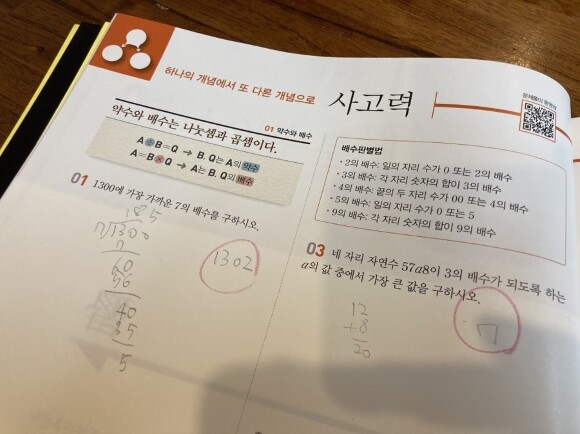 하나의 개념에서 또 다른 개념으로
사고력
문제풀이 동영상
약수와 배수는 나눗셈과 곱셈이다.
01 약수와 배수
A÷B=Q → B, Q는 A의 약수
A=B×Q → A는 B, Q의 배수
01 1300에 가장 가까운 7의 배수를 구하시오.
185
7/1300
7
60
56
40
35
5
1302
배수판별법
· 2의 배수: 일의 자리 수가 0 또는 2의 배수
· 3의 배수: 각 자리 숫자의 합이 3의 배수
· 4의 배수: 끝의 두 자리 수가 00 또는 4의 배수
· 5의 배수: 일의 자리 수가 0 또는 5
· 9의 배수: 각 자리 숫자의 합이 9의 배수
03 네 자리 자연수 57a8이 3의 배수가 되도록 하는
a의 값 중에서 가장 큰 값을 구하시오.
12
+8
20
7